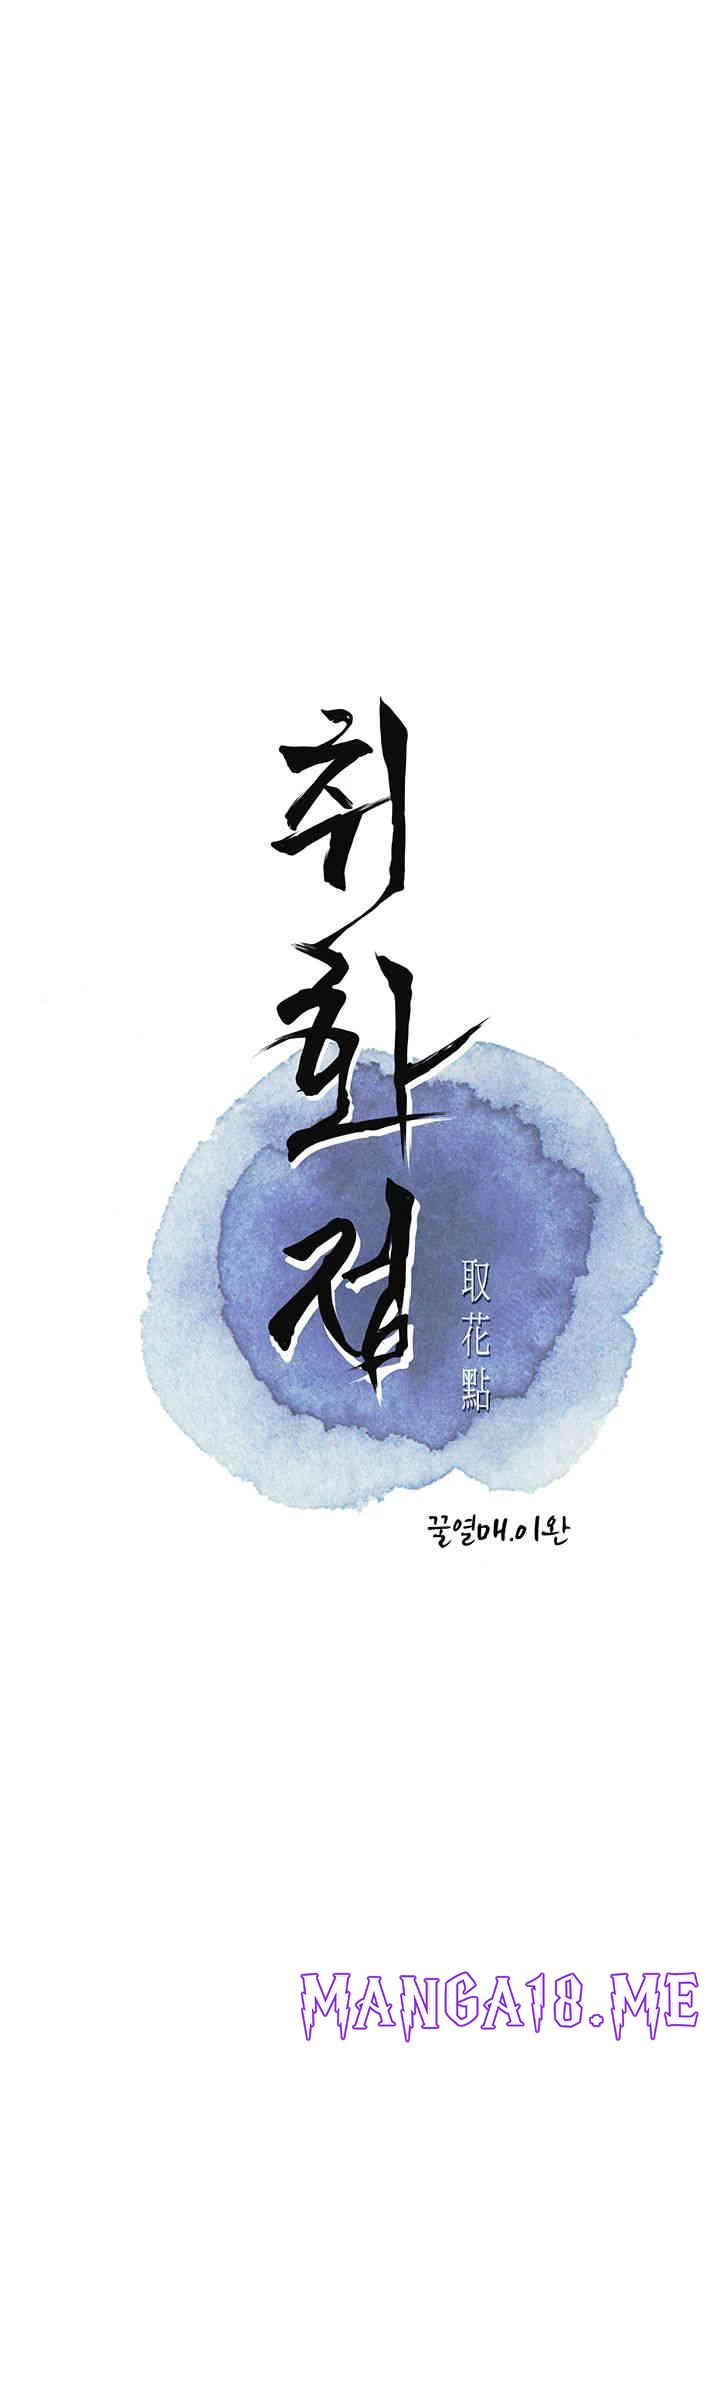 취화점
取花點
꿀열매.이완
MANGA18.ME